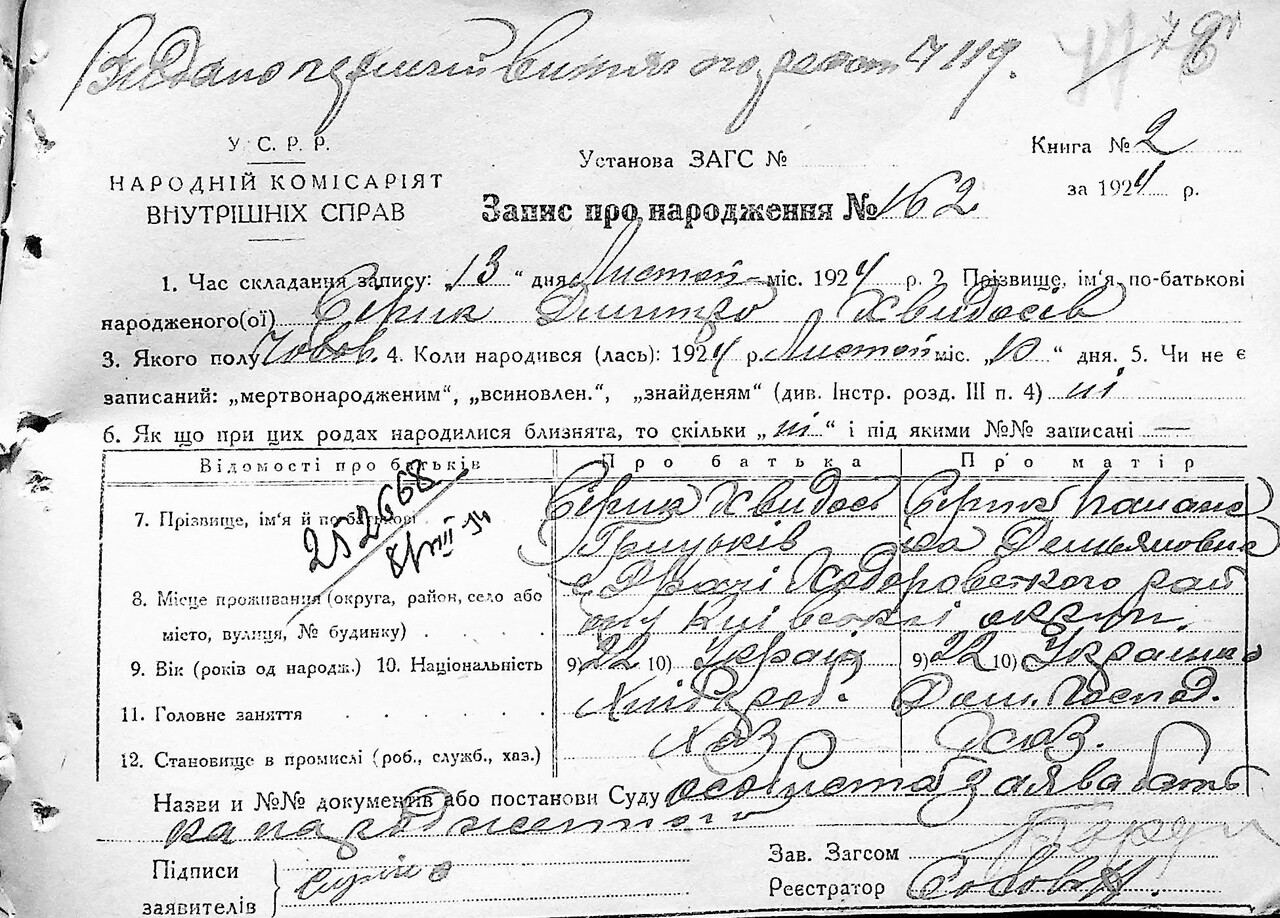 Видано
У. С. Р. Р.
НАРОДНІЙ КОМІСАРІЯТ
ВНУТРІШНІХ СПРАВ
Установа ЗАГС №
Запис про народження № 162
Книга № 2
за 1924 р.
1. Час складання запису: „13“ дня Листоп міс. 1924 р. 2. Прізвище, ім'я, по-батькові
народженого(ої) Сірик Дмитро Хвидосів
3. Якого полу Чолов. 4. Коли народився (лась): 1924 р. Листоп міс. „10“ дня. 5. Чи не є
записаний: „мертвонародженим“, „всиновлен.“, „знайденям“ (див. Інстр. розд. III п. 4) ні
6. Як що при цих родах народилися близнята, то скільки „ні“ і під якими №№ записані —
Відомості про батьків Про батька Про матір
252668
7. Прізвище, ім'я й по-батькові Сірик Хвидось Сірик
Грицьків Демьяновна
8. Місце проживання (округа, район, село або Ходоровського рай
місто, вулиця, № будинку) ону Київської округи.
9. Вік (років од народж.) 10. Національність 9) 22 10) Украін 9) 22 10) Украінка
11. Головне заняття Хліброб. Дом. Господ.
12. Становище в промислі (роб., служб., хаз.) Хаз
Назви и №№ документів або постанови Суду особиста заява бать
ка народженого
Підписи
заявителів
Зав. Загсом
Реєстратор